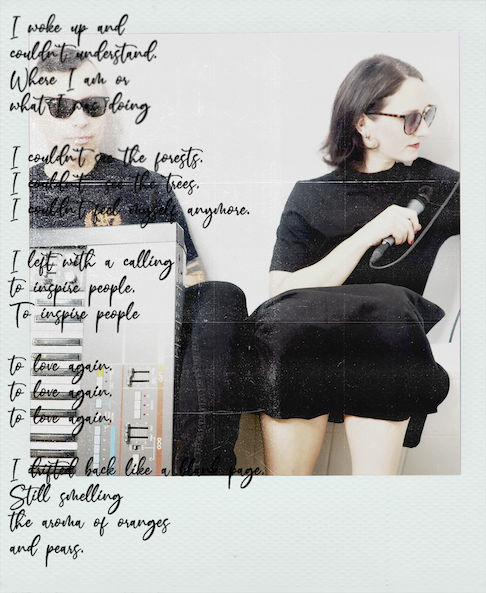 I woke up and
couldn't understand.
Where I am or
what I was doing
I couldn't see the forests.
I couldn't see the trees.
I couldn't feel myself anymore.
I left with a calling
to inspire people.
To inspire people
to love again.
to love again.
to love again.
I drifted back like a blank page.
Still smelling
the aroma of oranges
and pears.